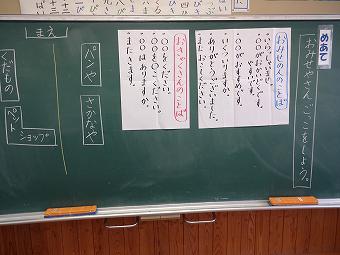 めあて
おみせやさんごっこをしよう。
おみせの人のことば
いらっしゃいませ。
〇〇がおかいどくです。
やすいです。
いくついりますか。
ありがとうございました。
またおこしください。
おきゃくさんのことば
〇〇をください。
〇〇を〇〇ください。
〇〇はありますか。
またきます。
まえ
パンや
さかなや
くだもの
ペット
ショップ